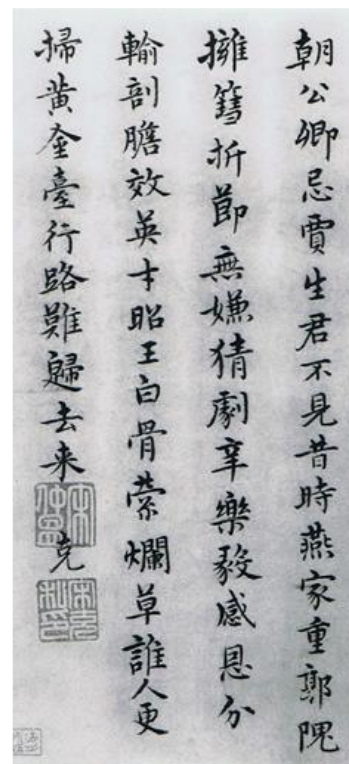 朝公卿忌賈生君不見昔時燕家重郭隗
擁篲折節無嫌猜劇辛樂毅感恩分
輸剖膽效英才昭王白骨縈爛草誰人更
掃黄金臺行路難歸去来 克